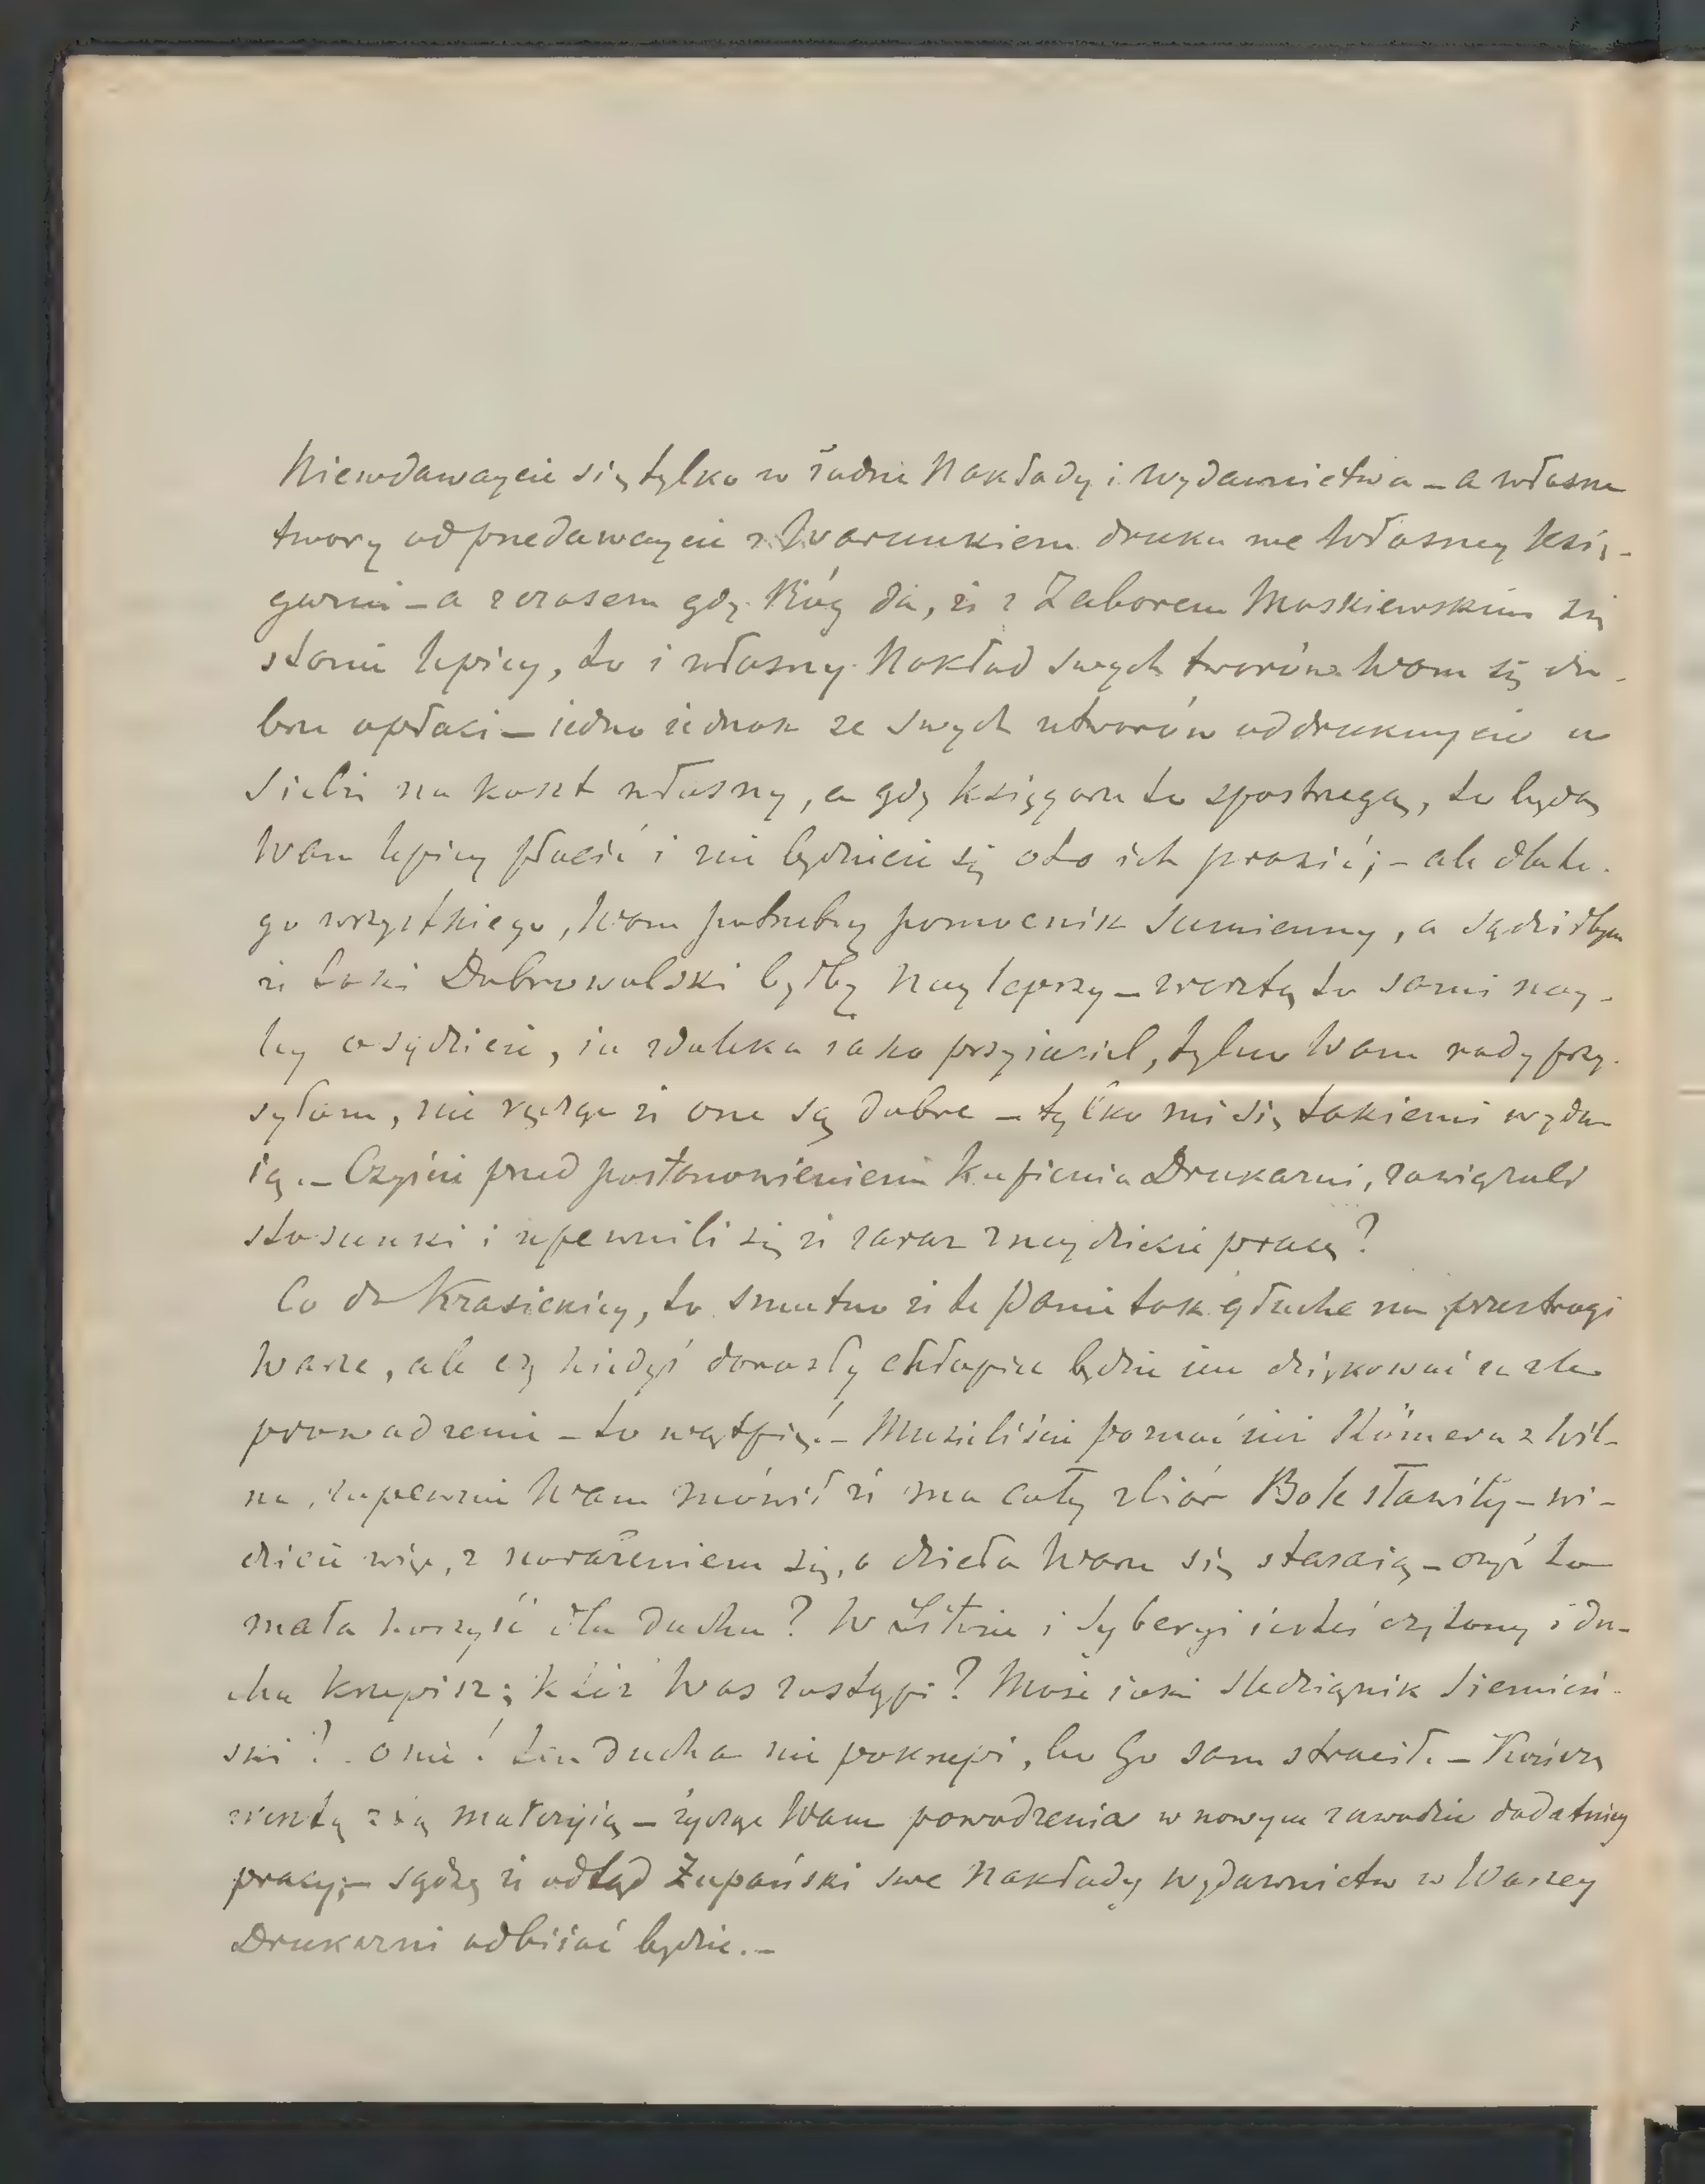 Niewdawaycie się tylko w żadne Nakłady i Wydawnictwa – a własne
twory odprzedawaycie z Warunkiem druku we własney księ-
garni – a z czasem gdy Bóg da, że z Zaborem Moskiewskim się
stanie lepiey, to i własny Nakład swych tworów Wam się do-
brze opłaci – iedno iednak ze swych utworów oddrukuycie u
siebie na koszt własny, a gdy księgarze to spostrzegą, to będą
Wam lepiey płacić i nie będziecie się oto ich prosić; – ale dla te-
go wszystkiego, Wam potrzebny pomocnik sumienny, a sądziłbym
że taki Dobrowolski byłby naylepszy – zresztą to sami nay-
lepiey osądzicie, ia zdaleka iako przyiaciel, tylko Wam rady przy-
syłam, nie ręczę że one są dobre – tylko mi się takiemi wyda-
ią. – Czyście przed postanowieniem kupienia Drukarni, zawiązali
stosunki i upewnili się że zaraz znaydziecie pracę?
Co do Krasickiey, to smutno że te Panie tak głuche na przestrogi
Wasze, ale czy kiedyś dorosły chłopiec będzie im dziękować za złe
prowadzenie – to wątpię. – Musieliście poznać się Römera z Wil-
na, zapewne Wam mówił że ma cały zbiór Bolesławity – wi-
dzicie więc, z narażeniem się, o dzieła Wam się staraią – czyż to
mała korzyść dla ducha? W Litwie i Syberyi iesteś czytany i du-
cha krzepisz; któż Was zastąpi? Może iaki Siemień-
ski? o nie! ten ducha nie pokrzepi, bo Go sam stracił. – Kończę
zresztą tą materyią – życzę Wam powodzenia w nowym zawodzie dodatniey
pracy; – sądzę że odtąd Żupański swe nakłady wydawnictw w Waszey
Drukarni odbiiać będzie. –